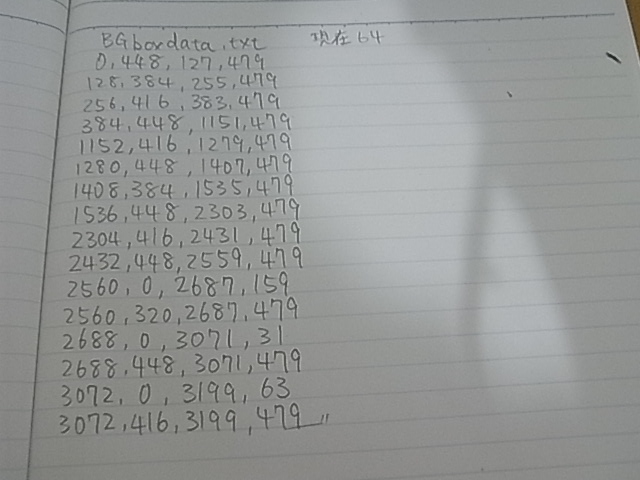 BGboxdata.txt 現在64
0,448,127,479
128,384,255,479
256,416,383,479
384,448,1151,479
1152,416,1279,479
1280,448,1407,479
1408,384,1535,479
1536,448,2303,479
2304,416,2431,479
2432,448,2559,479
2560,0,2687,159
2560,320,2687,479
2688,0,3071,31
2688,448,3071,479
3072,0,3199,63
3072,416,3199,479